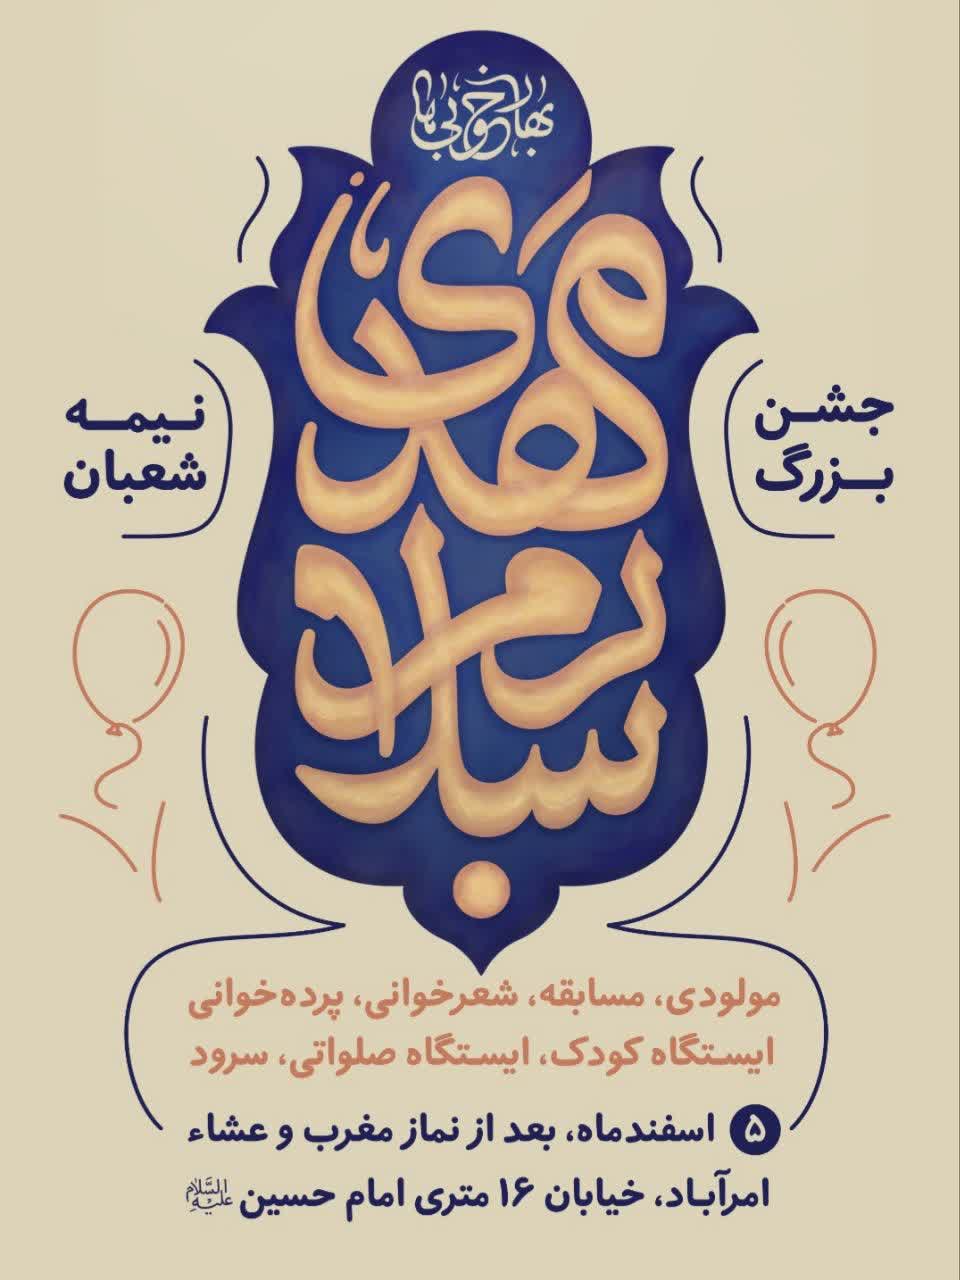 بهار خوبی‌ها
سلام بر مهدی
جشن
بزرگ
نیمه
شعبان
مولودی، مسابقه، شعرخوانی، پرده‌خوانی
ایستگاه کودک، ایستگاه صلواتی، سرود
۵ اسفندماه، بعد از نماز مغرب و عشاء
امرآباد، خیابان ۱۶ متری امام حسین علیه السلام